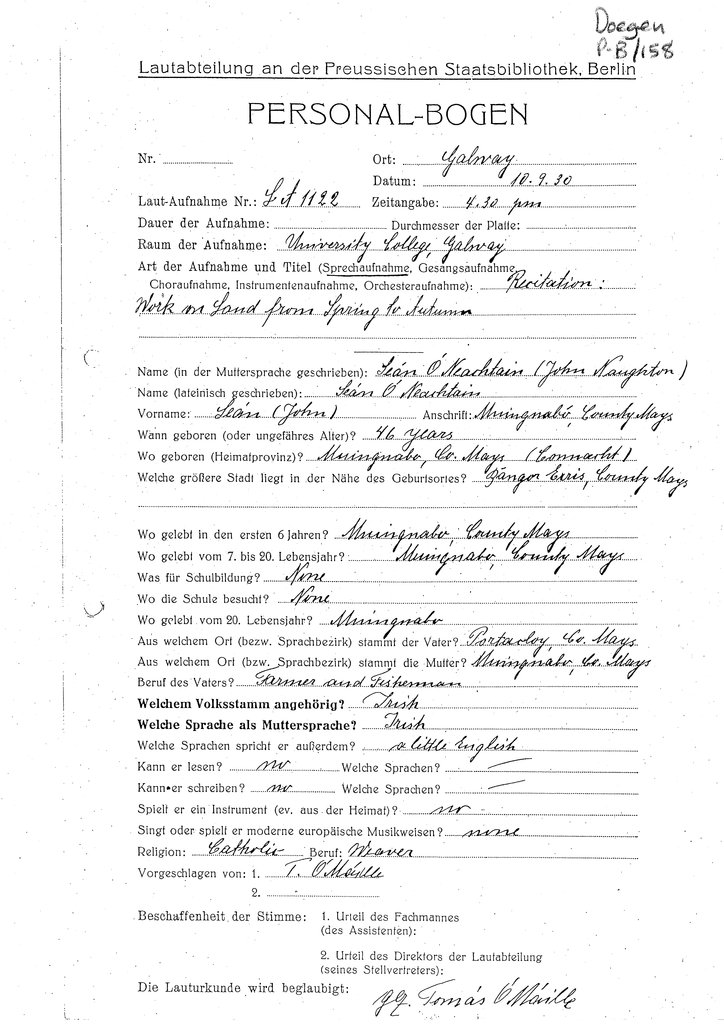 Doegen
P-B/158
Lautabteilung an der Preussischen Staatsbibliothek, Berlin
PERSONAL-BOGEN
Nr.
Ort: Galway
Datum: 10.9.30
Laut-Aufnahme Nr.: LA 1122 Zeitangabe: 4.30 pm
Dauer der Aufnahme: Durchmesser der Platte:
Raum der Aufnahme: University College, Galway
Art der Aufnahme und Titel (Sprechaufnahme, Gesangsaufnahme,
Choraufnahme, Instrumentenaufnahme, Orchesteraufnahme): Recitation:
Work on Land from Spring to Autumn
Name (in der Muttersprache geschrieben): Seán Ó Neachtain (John Naughton)
Name (lateinisch geschrieben): Seán Ó Neachtain
Vorname: Seán (John) Anschrift: Muingnabó, County Mayo
Wann geboren (oder ungefähres Alter)? 46 years
Wo geboren (Heimatprovinz)? Muingnabo, Co. Mayo (Connacht)
Welche größere Stadt liegt in der Nähe des Geburtsortes? Bangor Erris, County Mayo
Wo gelebt in den ersten 6 Jahren? Muingnabo, County Mayo
Wo gelebt vom 7. bis 20. Lebensjahr? Muingnabo, County Mayo
Was für Schulbildung? None
Wo die Schule besucht? None
Wo gelebt vom 20. Lebensjahr? Muingnabo
Aus welchem Ort (bezw. Sprachbezirk) stammt der Vater? Portacloy, Co. Mayo
Aus welchem Ort (bzw. Sprachbezirk) stammt die Mutter? Muingnabo, Co. Mayo
Beruf des Vaters? Farmer and Fisherman
Welchem Volksstamm angehörig? Irish
Welche Sprache als Muttersprache? Irish
Welche Sprachen spricht er außerdem? a little English
Kann er lesen? no Welche Sprachen? —
Kann er schreiben? no Welche Sprachen? —
Spielt er ein Instrument (ev. aus der Heimat)? no
Singt oder spielt er moderne europäische Musikweisen? none
Religion: Catholic Beruf: Weaver
Vorgeschlagen von: 1. T. Ó Máille
2.
Beschaffenheit der Stimme: 1. Urteil des Fachmannes
(des Assistenten):
2. Urteil des Direktors der Lautabteilung
(seines Stellvertreters):
Die Lauturkunde wird beglaubigt: gez. Tomás Ó Máille